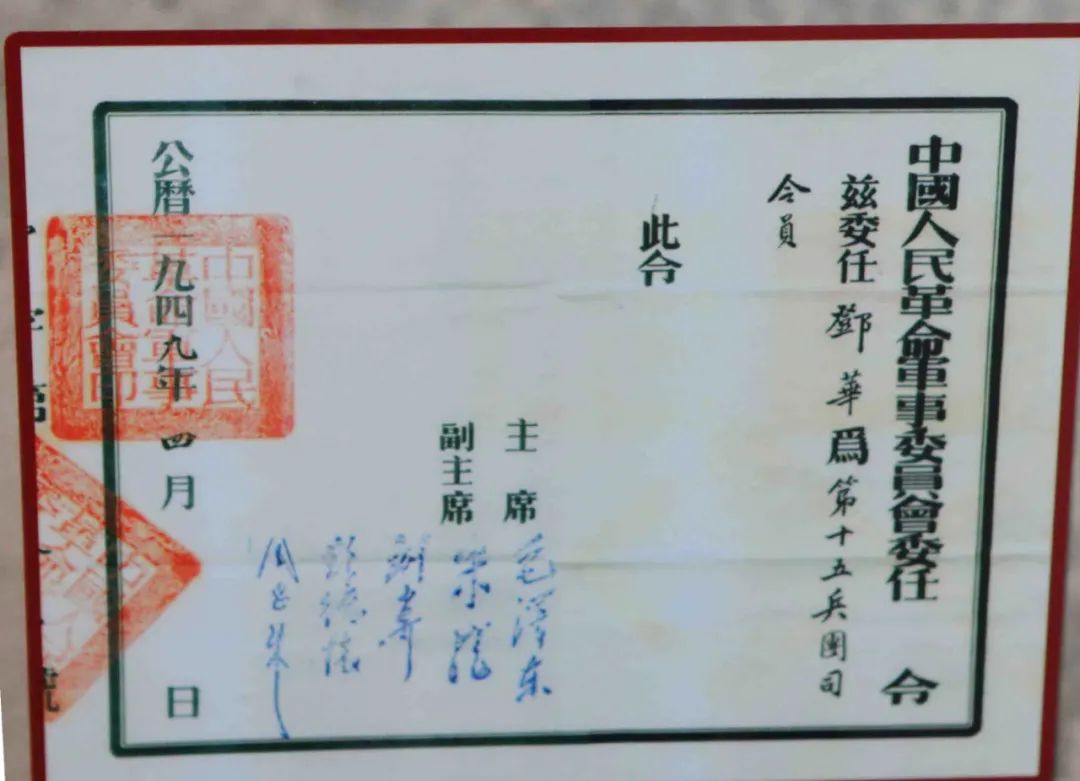 中國人民革命軍事委員會委任令
茲委任鄧華爲第十五兵團司
令員
此令
主席 毛澤东
副主席 朱德
劉少奇
彭德怀
周恩来
公曆一九四九年四月 日
中國人民
革命軍事
委員會印
字第 號